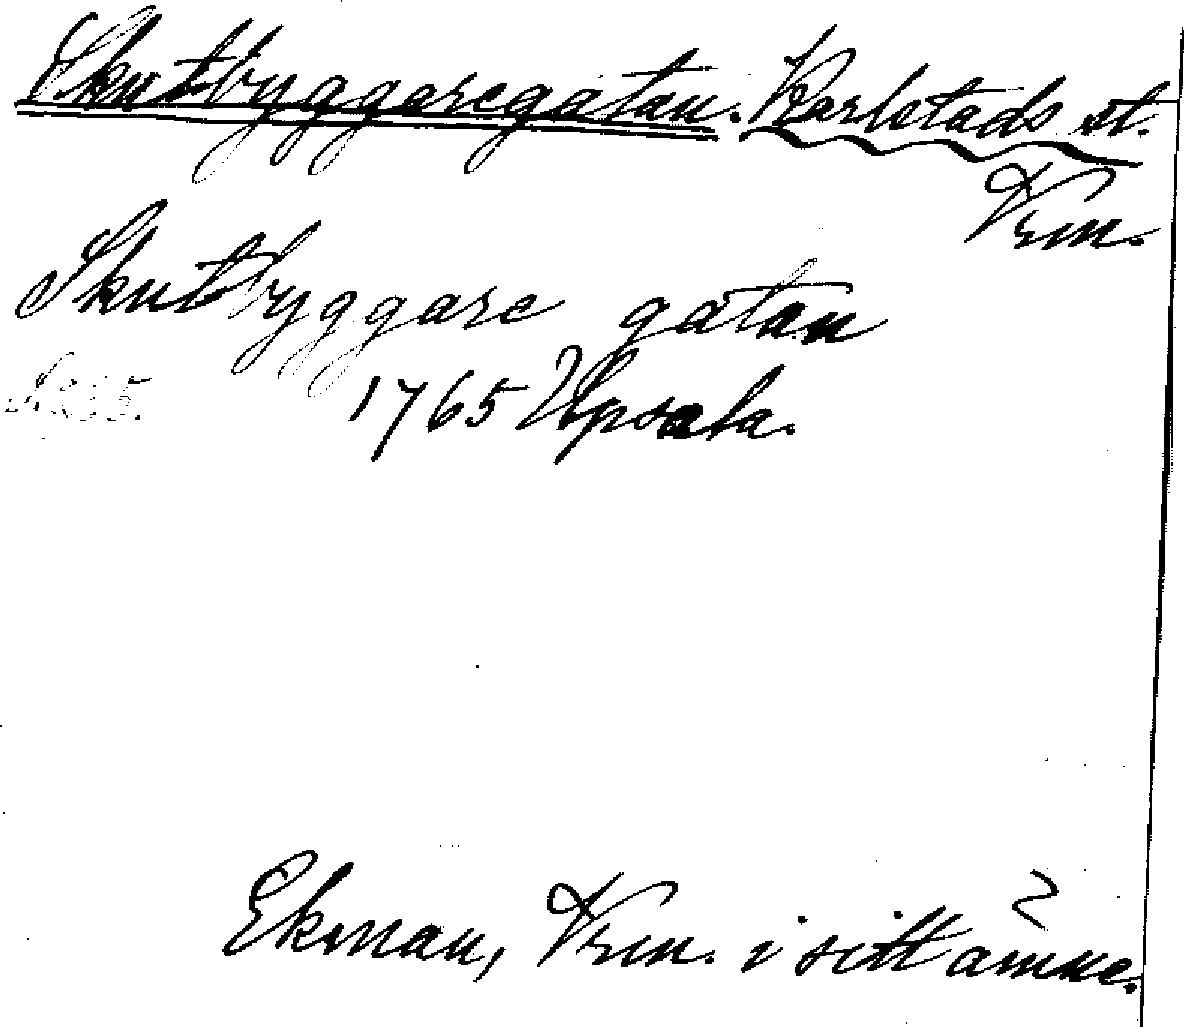 Skutbyggaregatan. Karlstads st.
Vrm.
Skutbyggare gatan
1765 Upsala.
Ekman, Vrm. i sitt ämne.